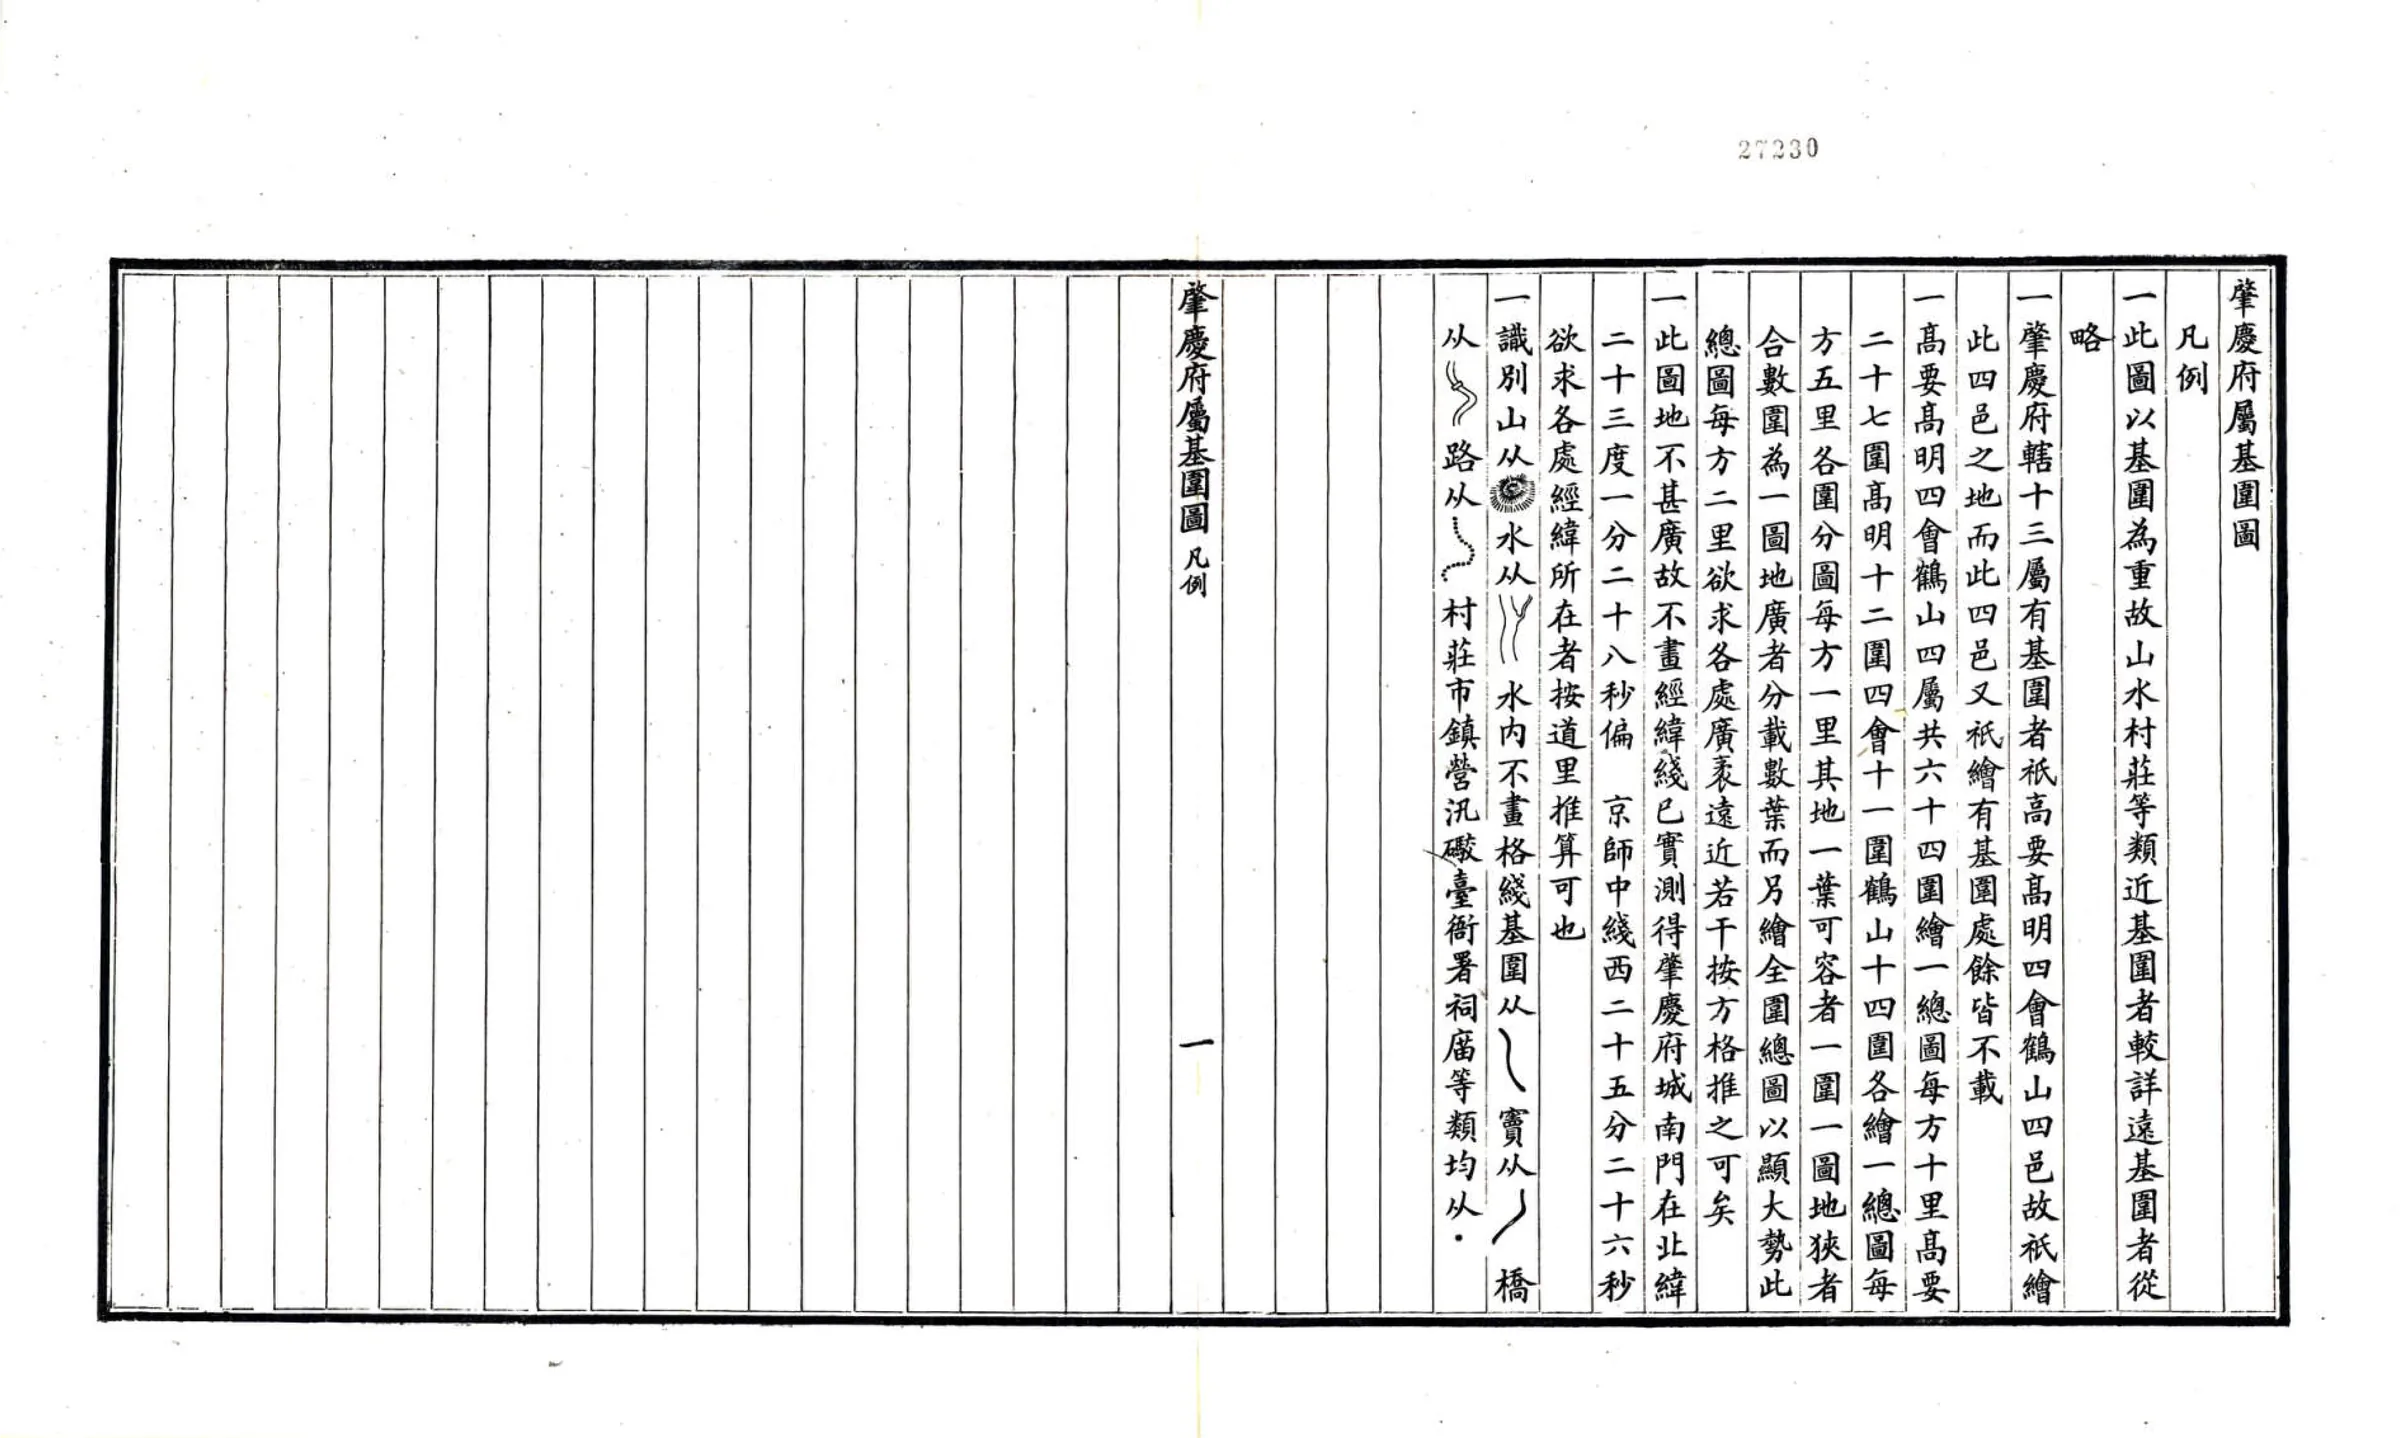 27230
肇慶府屬基圍圖
凡例
一此圖以基圍為重故山水村莊等類近基圍者較詳遠基圍者從
略
一肇慶府轄十三屬有基圍者祇高要高明四會鶴山四邑故祇繪
此四邑之地而此四邑又祇繪有基圍處餘皆不載
一高要高明四會鶴山四屬共六十四圍繪一總圖每方十里高要
二十七圍高明十二圍四會十一圍鶴山十四圍各繪一總圖每
方五里各圍分圖每方一里其地一葉可容者一圍一圖地狹者
合數圍為一圖地廣者分載數葉而另繪全圍總圖以顯大勢此
總圖每方二里欲求各處廣袤遠近若干按方格推之可矣
一此圖地不甚廣故不畫經緯綫已實測得肇慶府城南門在北緯
二十三度一分二十八秒偏 京師中綫西二十五分二十六秒
欲求各處經緯所在者按道里推算可也
一識別山从 水从 水内不畫格綫基圍从 竇从 橋
从 路从 村莊市鎮營汛礮臺衙署祠庿等類均从·
肇慶府屬基圍圖 凡例
一